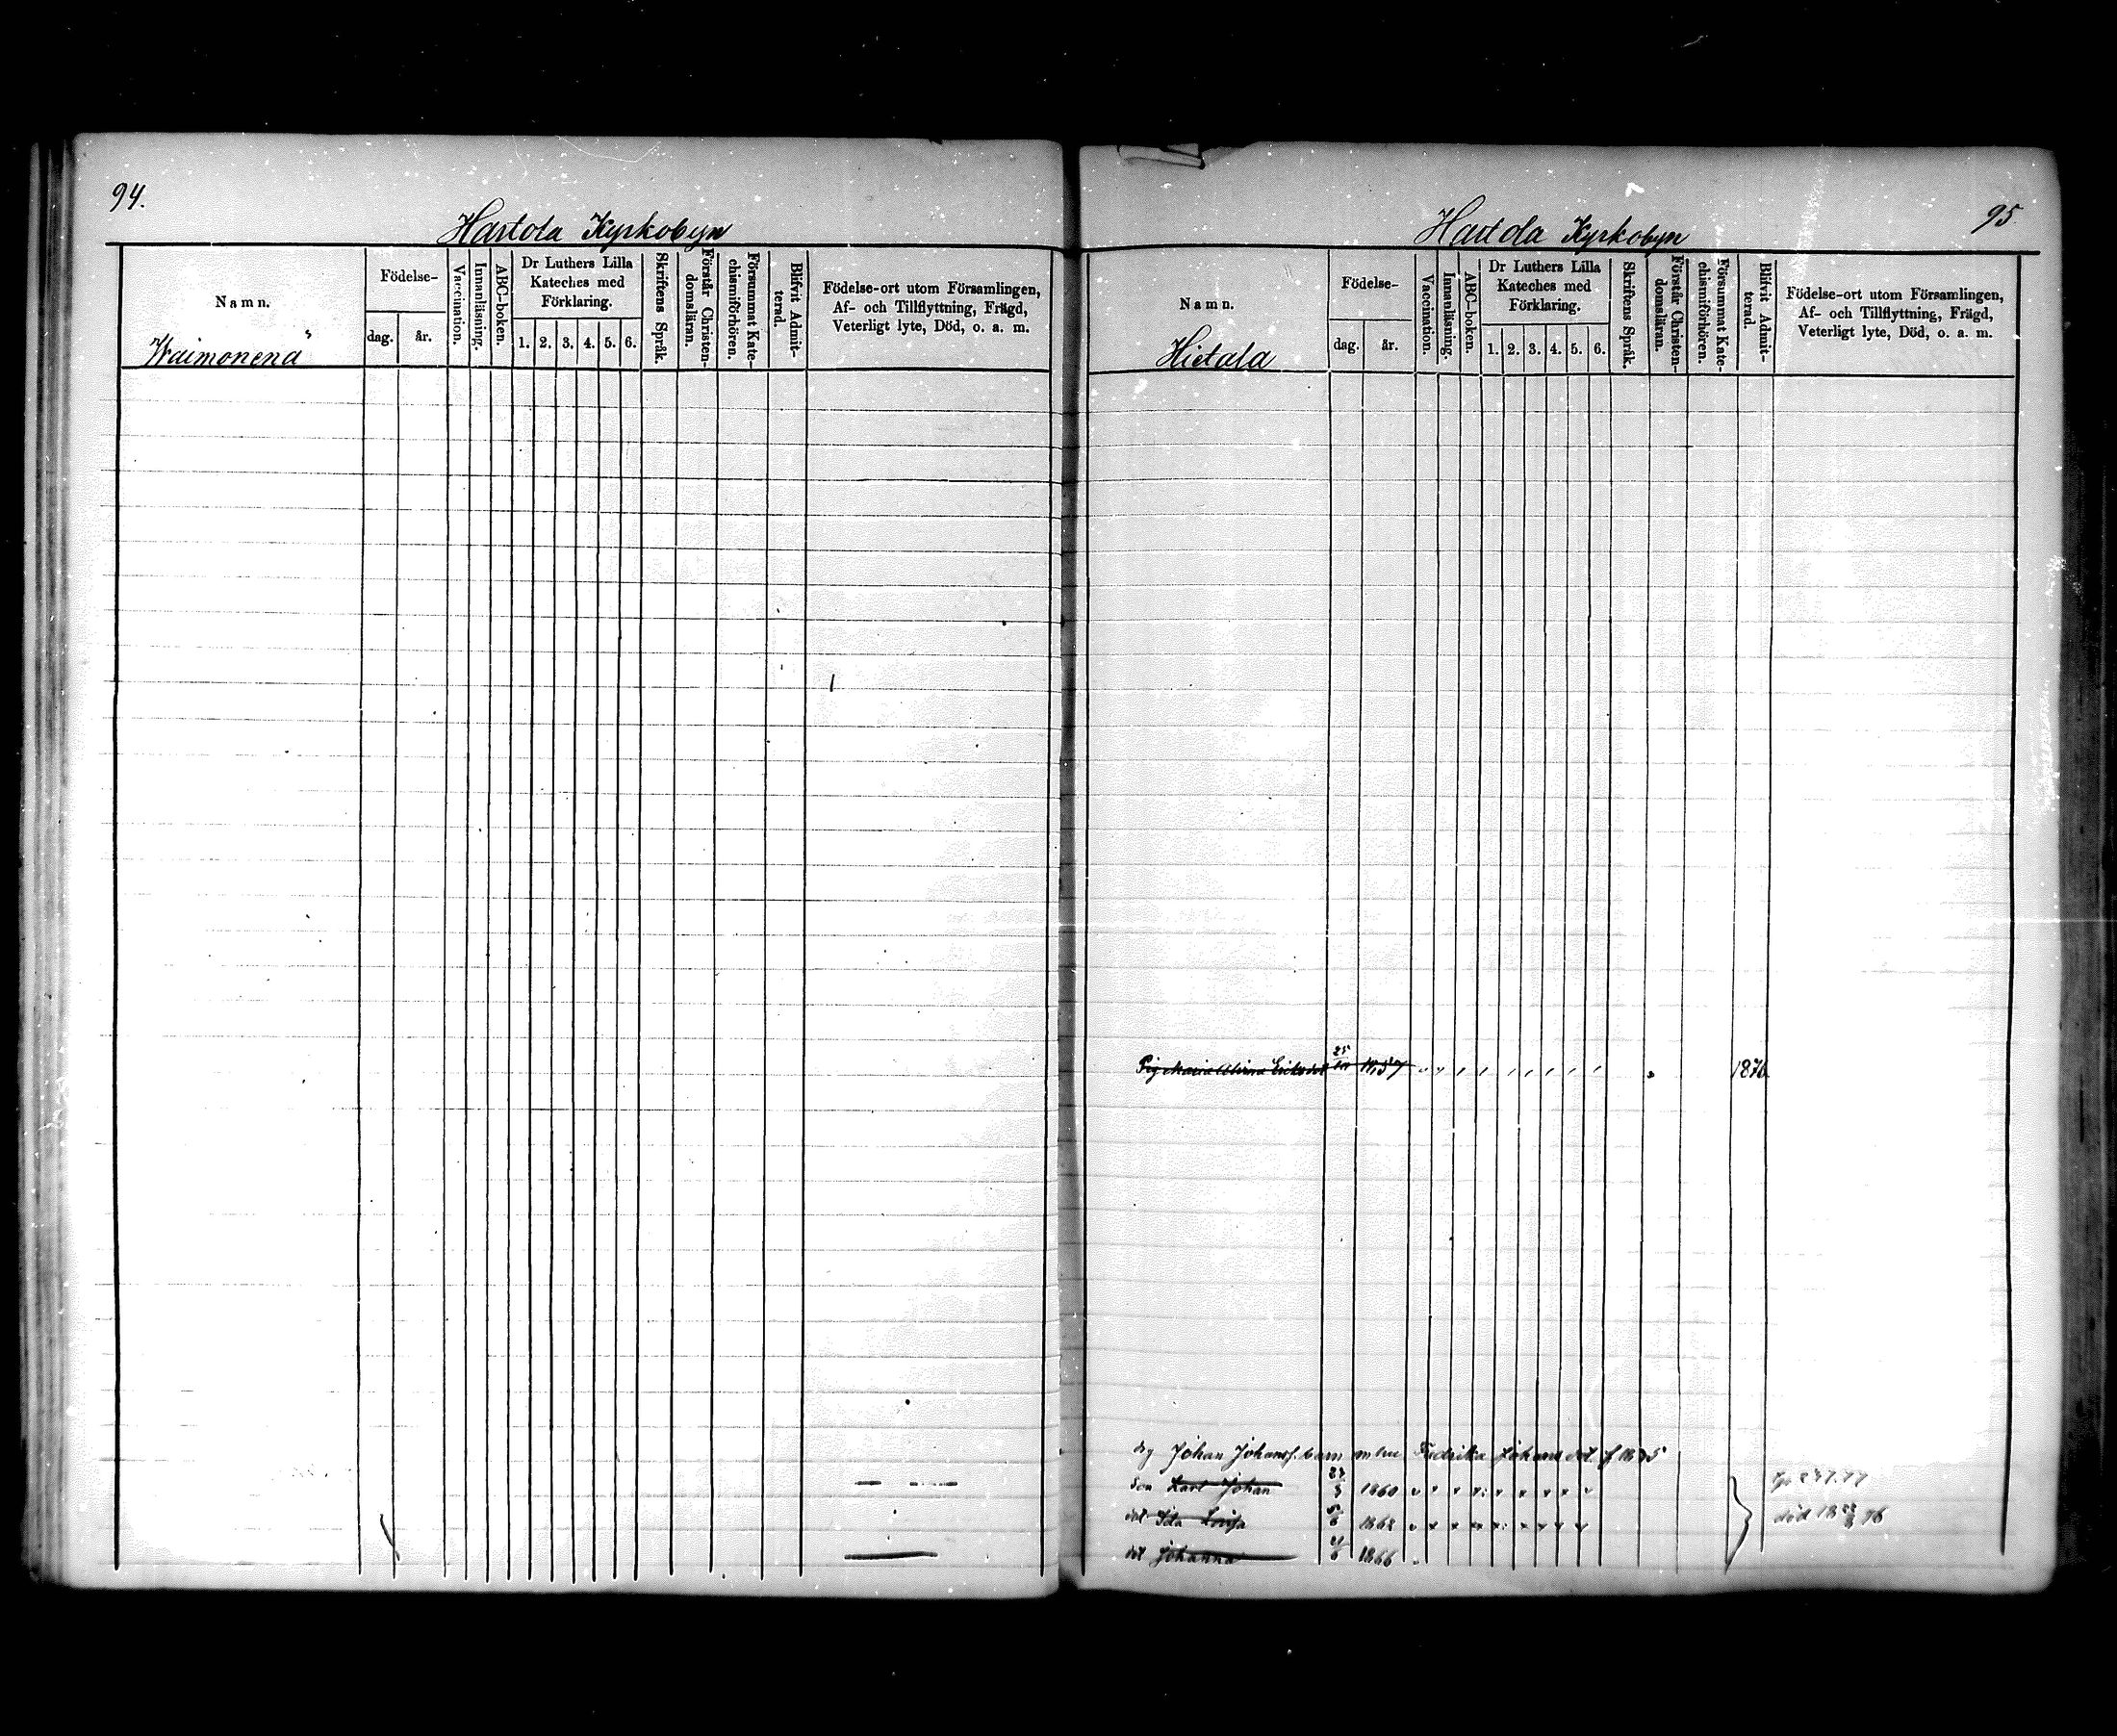 94.
Hartola Kyrkobyn
Namn.
Födelse-
dag.
år.
Vaccination.
Innanläsning.
ABC-boken.
Dr Luthers Lilla
Kateches med
Förklaring.
1. 2. 3. 4. 5. 6.
Skriftens Språk.
Förstår Christen-
domsläran.
Försummat Kate-
chismiförhören.
Blifvit Admit-
terad.
Födelse-ort utom Församlingen,
Af- och Tillflyttning, Frägd,
Veterligt lyte, Död, o. a. m.
Waimonenä
95
Hartola Kyrkobyn
Namn.
Födelse-
dag.
år.
Vaccination.
Innanläsning.
ABC-boken.
Dr Luthers Lilla
Kateches med
Förklaring.
1. 2. 3. 4. 5. 6.
Skriftens Språk.
Förstår Christen-
domsläran.
Försummat Kate-
chismiförhören.
Blifvit Admit-
terad.
Födelse-ort utom Församlingen,
Af- och Tillflyttning, Frägd,
Veterligt lyte, Död, o. a. m.
Hietala
Pig Maria Eriksdot 1857 1876
Johan Johanss. barn Fredrika Johansdot f 1835
Son Karl Johan 1860
dot Ida Lovisa 1862 död 18 76
dot Johanna 1866